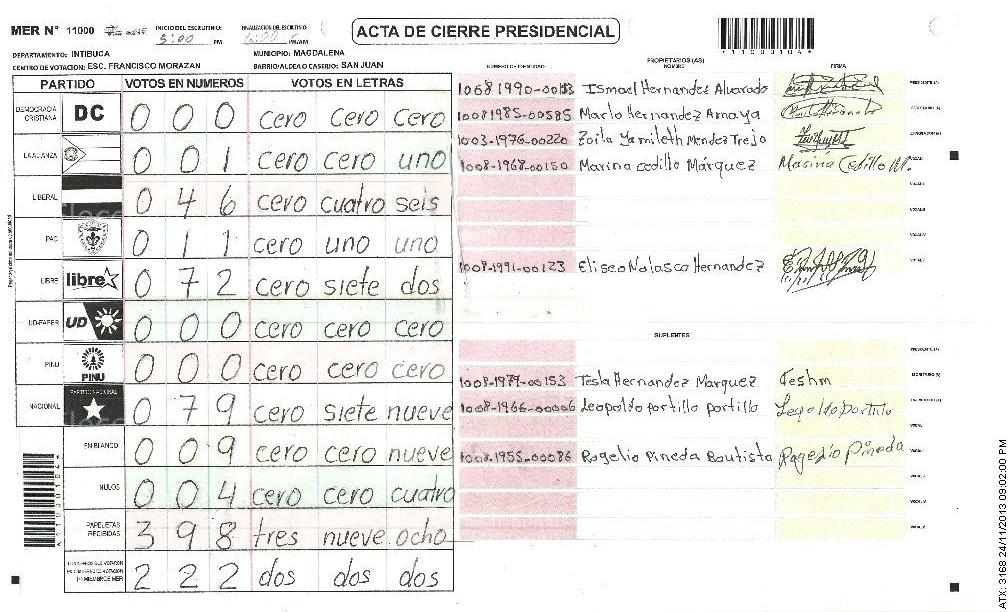 MER Nº 11000 INICIO DEL ESCRUTINIO: 5:00 PM FINALIZACION DEL ESCRUTINIO: PM/AM
ACTA DE CIERRE PRESIDENCIAL
DEPARTAMENTO: INTIBUCA MUNICIPIO: MAGDALENA
CENTRO DE VOTACION: ESC. FRANCISCO MORAZAN BARRIO/ALDEA O CASERIO: SAN JUAN
PARTIDO VOTOS EN NUMEROS VOTOS EN LETRAS
DEMOCRACIA CRISTIANA DC 0 0 0 cero cero cero
LA ALIANZA 0 0 1 cero cero uno
LIBERAL 0 4 6 cero cuatro seis
PAC 0 1 1 cero uno uno
LIBRE libre 0 7 2 cero siete dos
UD-FAPER UD 0 0 0 cero cero cero
PINU PINU 0 0 0 cero cero cero
NACIONAL PARTIDO NACIONAL 0 7 9 cero siete nueve
EN BLANCO 0 0 9 cero cero nueve
NULOS 0 0 4 cero cero cuatro
PAPELETAS RECIBIDAS 3 9 8 tres nueve ocho
2 2 2 dos dos dos
NUMERO DE IDENTIDAD PROPIETARIOS (AS) NOMBRE FIRMA
Ismael Hernandez Alvarado
10081985-00585 Marlo hernandez Amaya
1003-1976-00220 Zoila Yamileth Mendez Trejo
1008-1968-00150 Marina cedillo Márquez Marina Cedillo M.
1008-1991-00123 Eliseo Nolasco Hernandez
SUPLENTES
1008-1979-00153 Tesla Hernandez Marquez Teshm
1008-1966-00006 Leopoldo portillo portillo Leopoldo Portillo
1008-1955-00086 Rogelio Pineda Bautista Rogelio Pineda
*11000104*
ATX: 3168 24/11/2013 09:02:00 PM